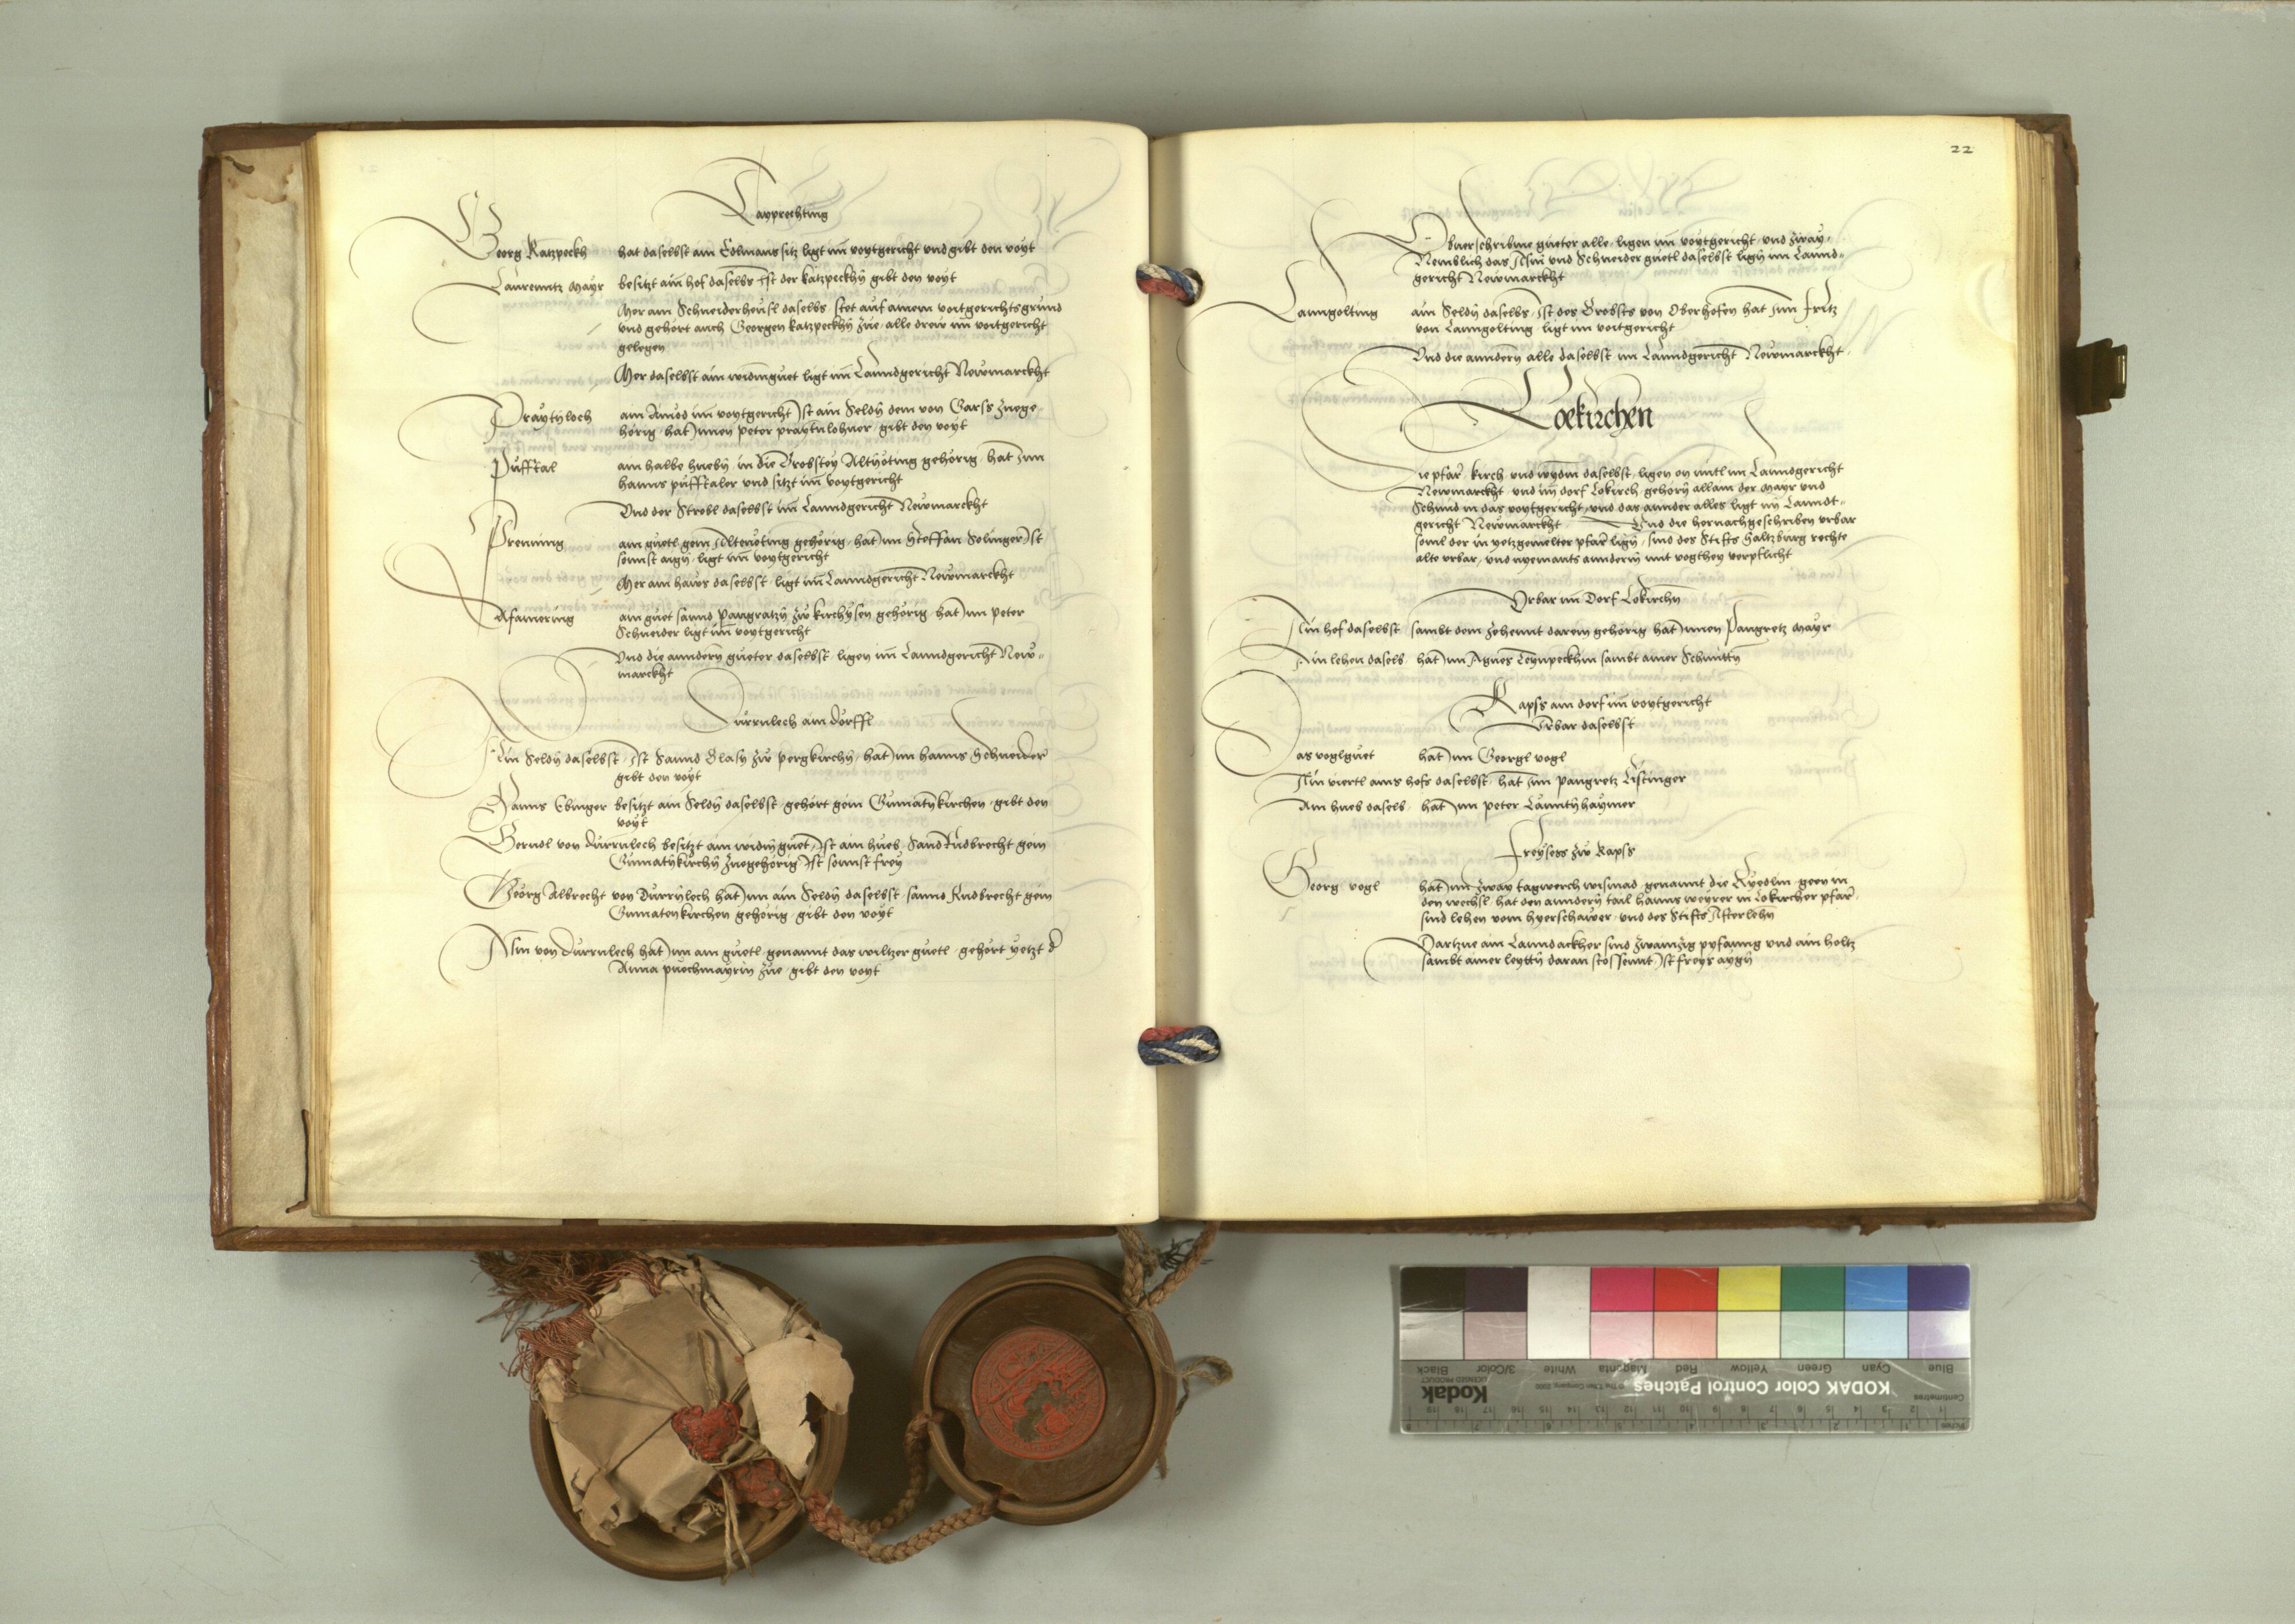 Tayprechting
Georg Katzpeckh hat daselbst ain Edlmanssitz ligt im voytgericht und gibt den voyt
Laurenntz Mayr besitzt ain hof daselbs Ist der katzpeckhn gibt den voyt
Mer ain Schneiderheusl daselbs stet auf ainem voitgerichtsgrund
und gehort auch Georgen katzpeckhn zue alle drew im voitgericht
gelegen
Mer daselbst ain widmguet ligt im Lanndgericht Newmarckht
Praytnloch ain Ainod im voytgericht Ist ain Seldn dem von Garss zuege
horig hat Innen peter praytnloher gibt den voyt
Pufftal ain halbe huebn in die Brobstey Altnoting gehorig hat Inn
hanns pufftaler und sitzt im voytgericht
Und der Strobl daselbst im Lanndgericht Newmarckht
Prenning ain guetl gein Altenoting gehorig hat Inn Steffan Solinger Ist
sonnst aign ligt im voytgericht
Mer ain haws daselbst ligt im Lanndgericht Newmarckht
Afamering ain guet sannd Pangratzn zw kirchysen gehorig hat Inn peter
Schneider ligt im voytgericht
Und die anndern gueter daselbst ligen im Lanndgericht New
marckht
Durrnlech ain dorffl
Ain Seldn daselbst Ist Sannd Blasy zw pergkirchn hat Inn hanns Schneider
gibt den voyt
Hanns Ebinger besitzt ain Seldn daselbst gehort gein Gumatnkirchen gibt den
voyt
Gerndl von durrnlech besitzt ain widn guet Ist ain hueb Sand Rudbrecht gein
Gumatnkirchn zuegehorig Ist sonnst frey
Georg Albrecht von Durrnlech hat Inn ain Seldn daselbst sannd Rudbrecht gein
Gumatenkirchen gehorig gibt den voyt
Asm von durrnlech hat Inn ain guetl genannt das wiltzer guetl gehort yetzt d
Anna puechmayrin zue gibt den voyt
22
Obuerschribne gueter alle ligen im voytgericht und zway
Nemblich das Asm und Schneider guetl daselbst lign im Lannd
gericht Newmarckht
Lanngolting ain Seldn daselbs Ist des Brobsts von Oberhofen hat Inn Fritz
von Lanngolting ligt im voitgericht
Und die anndern alle daselbst im Lanndgericht Newmarckht
Loekirchen
Die pfar kirch und wydm daselbst ligen on mitl im Lanndgericht
Newmarckht und im dorf Lokirch gehorn allain der Mayr und
Schmid in das voytgericht und das annder alles ligt im Lanndt
gericht Newmarckht Und die hernachgeschriben urbar
sovil der in yetzgemelter pfar lign sind des Stifts Saltzburg rechte
alte urbar und nyemants anndern mit vogthey verpflicht
Urbar im Dorf Lokirchn
Ain hof daselbst sambt dem zehennt darein gehorig hat Innen Pangretz Mayr
Ain lehen daselb hat Inn Agnes Leynpeckhin sambt ainer Schmittn
Rapss ain dorf im voytgericht
Urbar daselbst
Das voglguet hat Inn Georgl vogl
Ain viertl ains hofs daselbst hat Inn pangretz Listinger
Ain hueb daselb hat Inn peter Launtnhaymer
Freysess zw Rapss
Georg vogl hat Inn zway tagwerch wismad genannt die Ryedlin geen in
den wechsl hat den anndern tail hanns weyrer in Lokircher pfar
sind lehen vom hyerschawer und des Stifts Afterlehn
Dartzue ain Lanndackher sind zwainzig pyfanng und ain holtz
sambt ainer leyttn daran stossennt Ist freys aygn
KODAK Color Control Patches
Kodak
LICENSED PRODUCT
Black
3/Color
White
Magenta
Red
Yellow
Green
Cyan
Blue
Centimetres
Inches